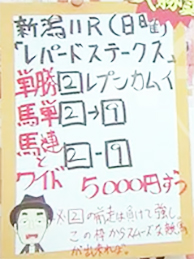 新潟11R(日曜)
「レパードステークス」
単勝2レプンカムイ
馬単2→9
馬連と
ワイド 2-9
5000円ずつ
※2の前走は負けて強し。
この枠からスムーズな競馬
が出来れば。